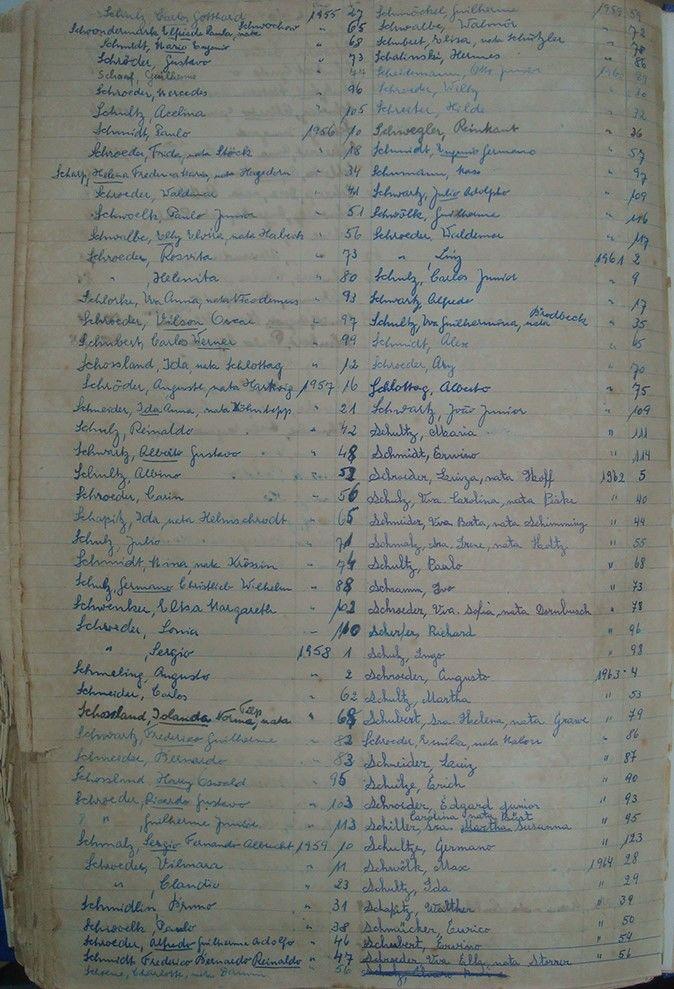 Schulz, Carlos Gotthard 1955 27
Schoondermark, Elfriede Paula, nata Schwochow " 65
Schmidt, Mario Eugenio " 68
Schröder, Gustavo " 73
Scharf, Guilherme
Schroeder, Mercedes " 96
Schultz, Acelina " 105
Schmidt, Paulo 1956 10
Schroeder, Frida, nata Stöck " 18
Helena Frederica Maria, nata Hagedorn " 34
Schroeder, Waldemar " 41
Schwoelk, Paulo Junior " 51
Schwalbe, Elly Elvira, nata " 56
Schroeder, Rosvita " 73
" , Helenita " 80
Anna, nata Nicodemus " 93
Schroeder, Wilson Oscar " 97
Schubert, Carlos Werner " 99
Schossland, Ida, nata Schlottag " 12
Schröder, Auguste, nata Hartwig 1957 16
Schneider, Ida Anna, nata " 21
Schulz, Reinaldo " 42
Schwartz, Alberto Gustavo " 48
Schultz, Albino " 52
Schroeder, Carin " 56
Ida, nata Helmschrodt " 65
Schulz, Julio " 71
Schmidt, nata Krössin " 74
Schulz, Germano Christlieb Wilhelm " 88
Schwenker, Elisa Margareth " 102
Schroeder, Sonia " 110
" , Sergio 1958 1
Schmeling, Augusto " 2
Schneider, Carlos " 62
Schossland, Iolanda Norma, nata " 68
Schwartz, Frederico Guilherme " 82
Schneider, Bernardo " 83
Schossland, Harry Oswald " 95
Schroeder, Ricardo Gustavo " 103
" , Guilherme Junior " 113
Schmalz, Sergio Fernando Albrecht 1959 10
Schroeder, Vilmara " 11
" , Claudio " 23
Schmidlin, Bruno " 31
Schrovelk, Paulo " 38
Schroeder, Alfredo Guilherme Adolfo " 46
Schmidt, Frederico Bernardo Reinaldo " 47
Charlotte, nata " 56
Schmöckel, Guilherme 1959 59
Schwalbe, Walmor " 72
Schubert, Elisa, nata Schützler " 78
Schalinski, Hermes " 86
Scheidemann, Otto Junior
Schroeder, Willy
Hilde " 32
Schwegler, Reinhart " 36
Schmidt, Eugenio Germano " 57
Schumann, " 97
Schwartz, Julio Adolpho " 109
Schwölk, Guilherme " 116
Schroeder, Waldemar " 117
" , Luiz 1961 2
Schulz, Carlos Junior " 9
Schwartz Alfredo " 17
Schultz, Vva Guilhermina, nata Brodbeck " 35
Schmidt, Alex " 65
Schroeder, Ary " 70
Schlottag, Alberto " 75
Schwartz, João Junior " 109
Schultz, Maria " 111
Schmidt, Erwino " 114
Schroeder, Luiza, nata Hoff 1962 5
Schulz, Vva. Carolina, nata " 40
Schneider, Vva Berta, nata Schimming " 44
Schmalz, Sra. Irene, nata " 55
Schultz, Paulo " 68
Schramm, Ivo " 73
Schroeder, Vva. Sofia, nata Dornbusch " 78
Scherfer, Richard " 96
Schulz, Ingo " 98
Schroeder, Augusto 1963 4
Schultz, Martha " 53
Schubert, Sra Helena, nata Grawe " 79
Schroeder, Emilia, nata " 86
Schneider, Luiz " 87
Schülze, Erich " 90
Schroider, Edgard Junior " 93
Schiller, Sra. Martha Susanna Carolina, nata " 95
Schultze, Germano " 123
Schwölk, Max 1964 28
Schultz, Ida " 29
Walther " 39
Schmücker, Eurico " 50
Schubert, Erwino " 54
Schroeder, Vva Ella, nata " 56